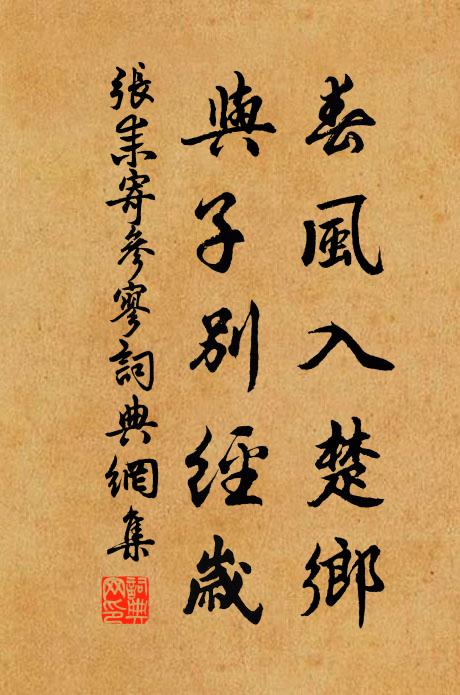 春風入楚鄉
與子別經歲
張耒寄參寥詞典網集
詞典網印